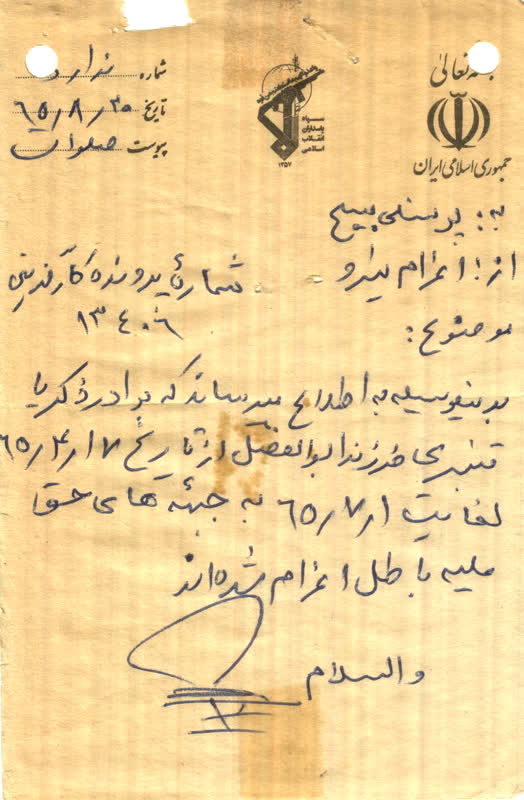 بسمه تعالی
جمهوری اسلامی ایران
سپاه
پاسداران
انقلاب
اسلامی
۱۳۵۷
شماره ندارد
تاریخ ۶۵/۸/۳۰
پیوست
به: پرسنلی بسیج
از: اعزام نیرو
شمارهٔ پرونده کارگزینی
۱۳۴۰۶
موضوع:
بدینوسیله به اطلاع میرساند که برادر ذکریا
قنبری فرزند ابوالفضل از تاریخ ۶۵/۴/۱۷
لغایت ۶۵/۷/۱ به جبهه های حق
علیه باطل اعزام شده اند
والسلام